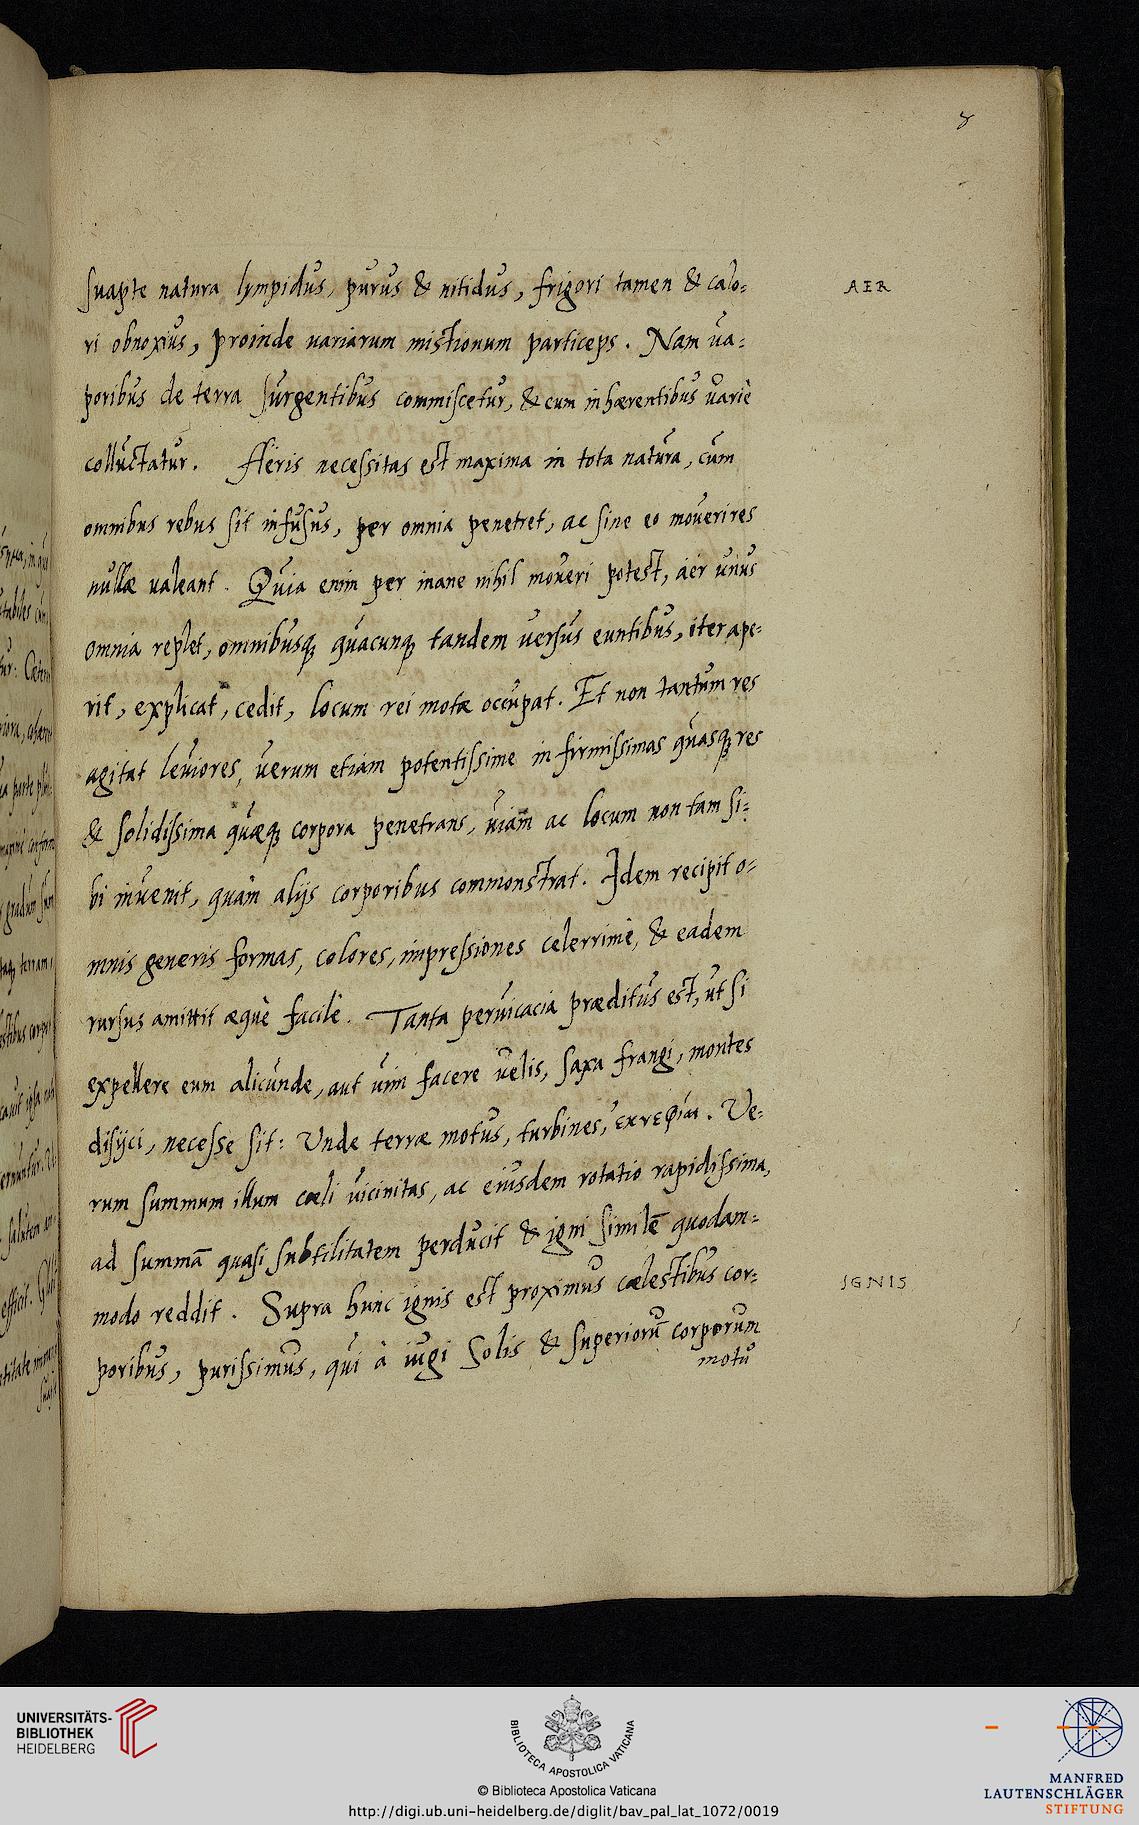 8
suapte natura lympidus, purus & nitidus, frigori tamen & calo-
AER
ri obnoxius, proinde variarum mistionum particeps. Nam va-
poribus de terra surgentibus commiscetur, & cum inhærentibus variè
colluctatur. Aëris necessitas est maxima in tota natura, cùm
omnibus rebus sit infusus, per omnia penetret, ac sine eo moveri res
nullæ valeant. Quia enim per inane nihil moveri potest, aër unus
omnia replet, omnibusq; quacunq; tandem versus euntibus, iter ape-
rit, explicat, cedit, locum rei motæ occupat. Et non tantum res
agitat leviores, verum etiam potentissime in firmissimas quasq; res
& solidissima quæq; corpora penetrans, viam ac locum non tam si-
bi invenit, quàm alijs corporibus commonstrat. Idem recipit o-
mnis generis formas, colores, impressiones celerrimè, & eadem
rursus amittit æquè facilè. Tanta pervicacia præditus est, ut si
expellere eum alicunde, aut vim facere velis, saxa frangi, montes
disijci, necesse sit: Unde terræ motus, turbines, ἐκνεφίαι. Ve-
rum summum illum cœli vicinitas, ac eiusdem rotatio rapidissima,
ad summā quasi subtilitatem perducit & igni similē quodam-
modo reddit. Supra hunc ignis est proximus cælestibus cor-
IGNIS
poribus, purissimus, qui à iugi Solis & superiorū corporum
motu
UNIVERSITÄTS-
BIBLIOTHEK
HEIDELBERG
BIBLIOTECA APOSTOLICA VATICANA
© Biblioteca Apostolica Vaticana
http://digi.ub.uni-heidelberg.de/diglit/bav_pal_lat_1072/0019
MANFRED
LAUTENSCHLÄGER
STIFTUNG